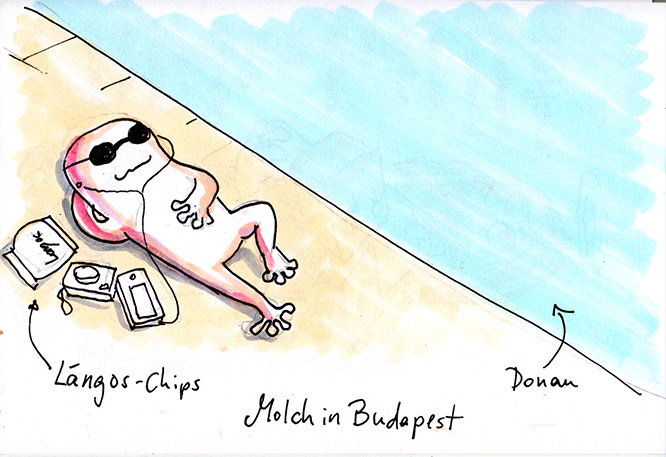 Langos
Lángos-Chips
Donau
Molch in Budapest